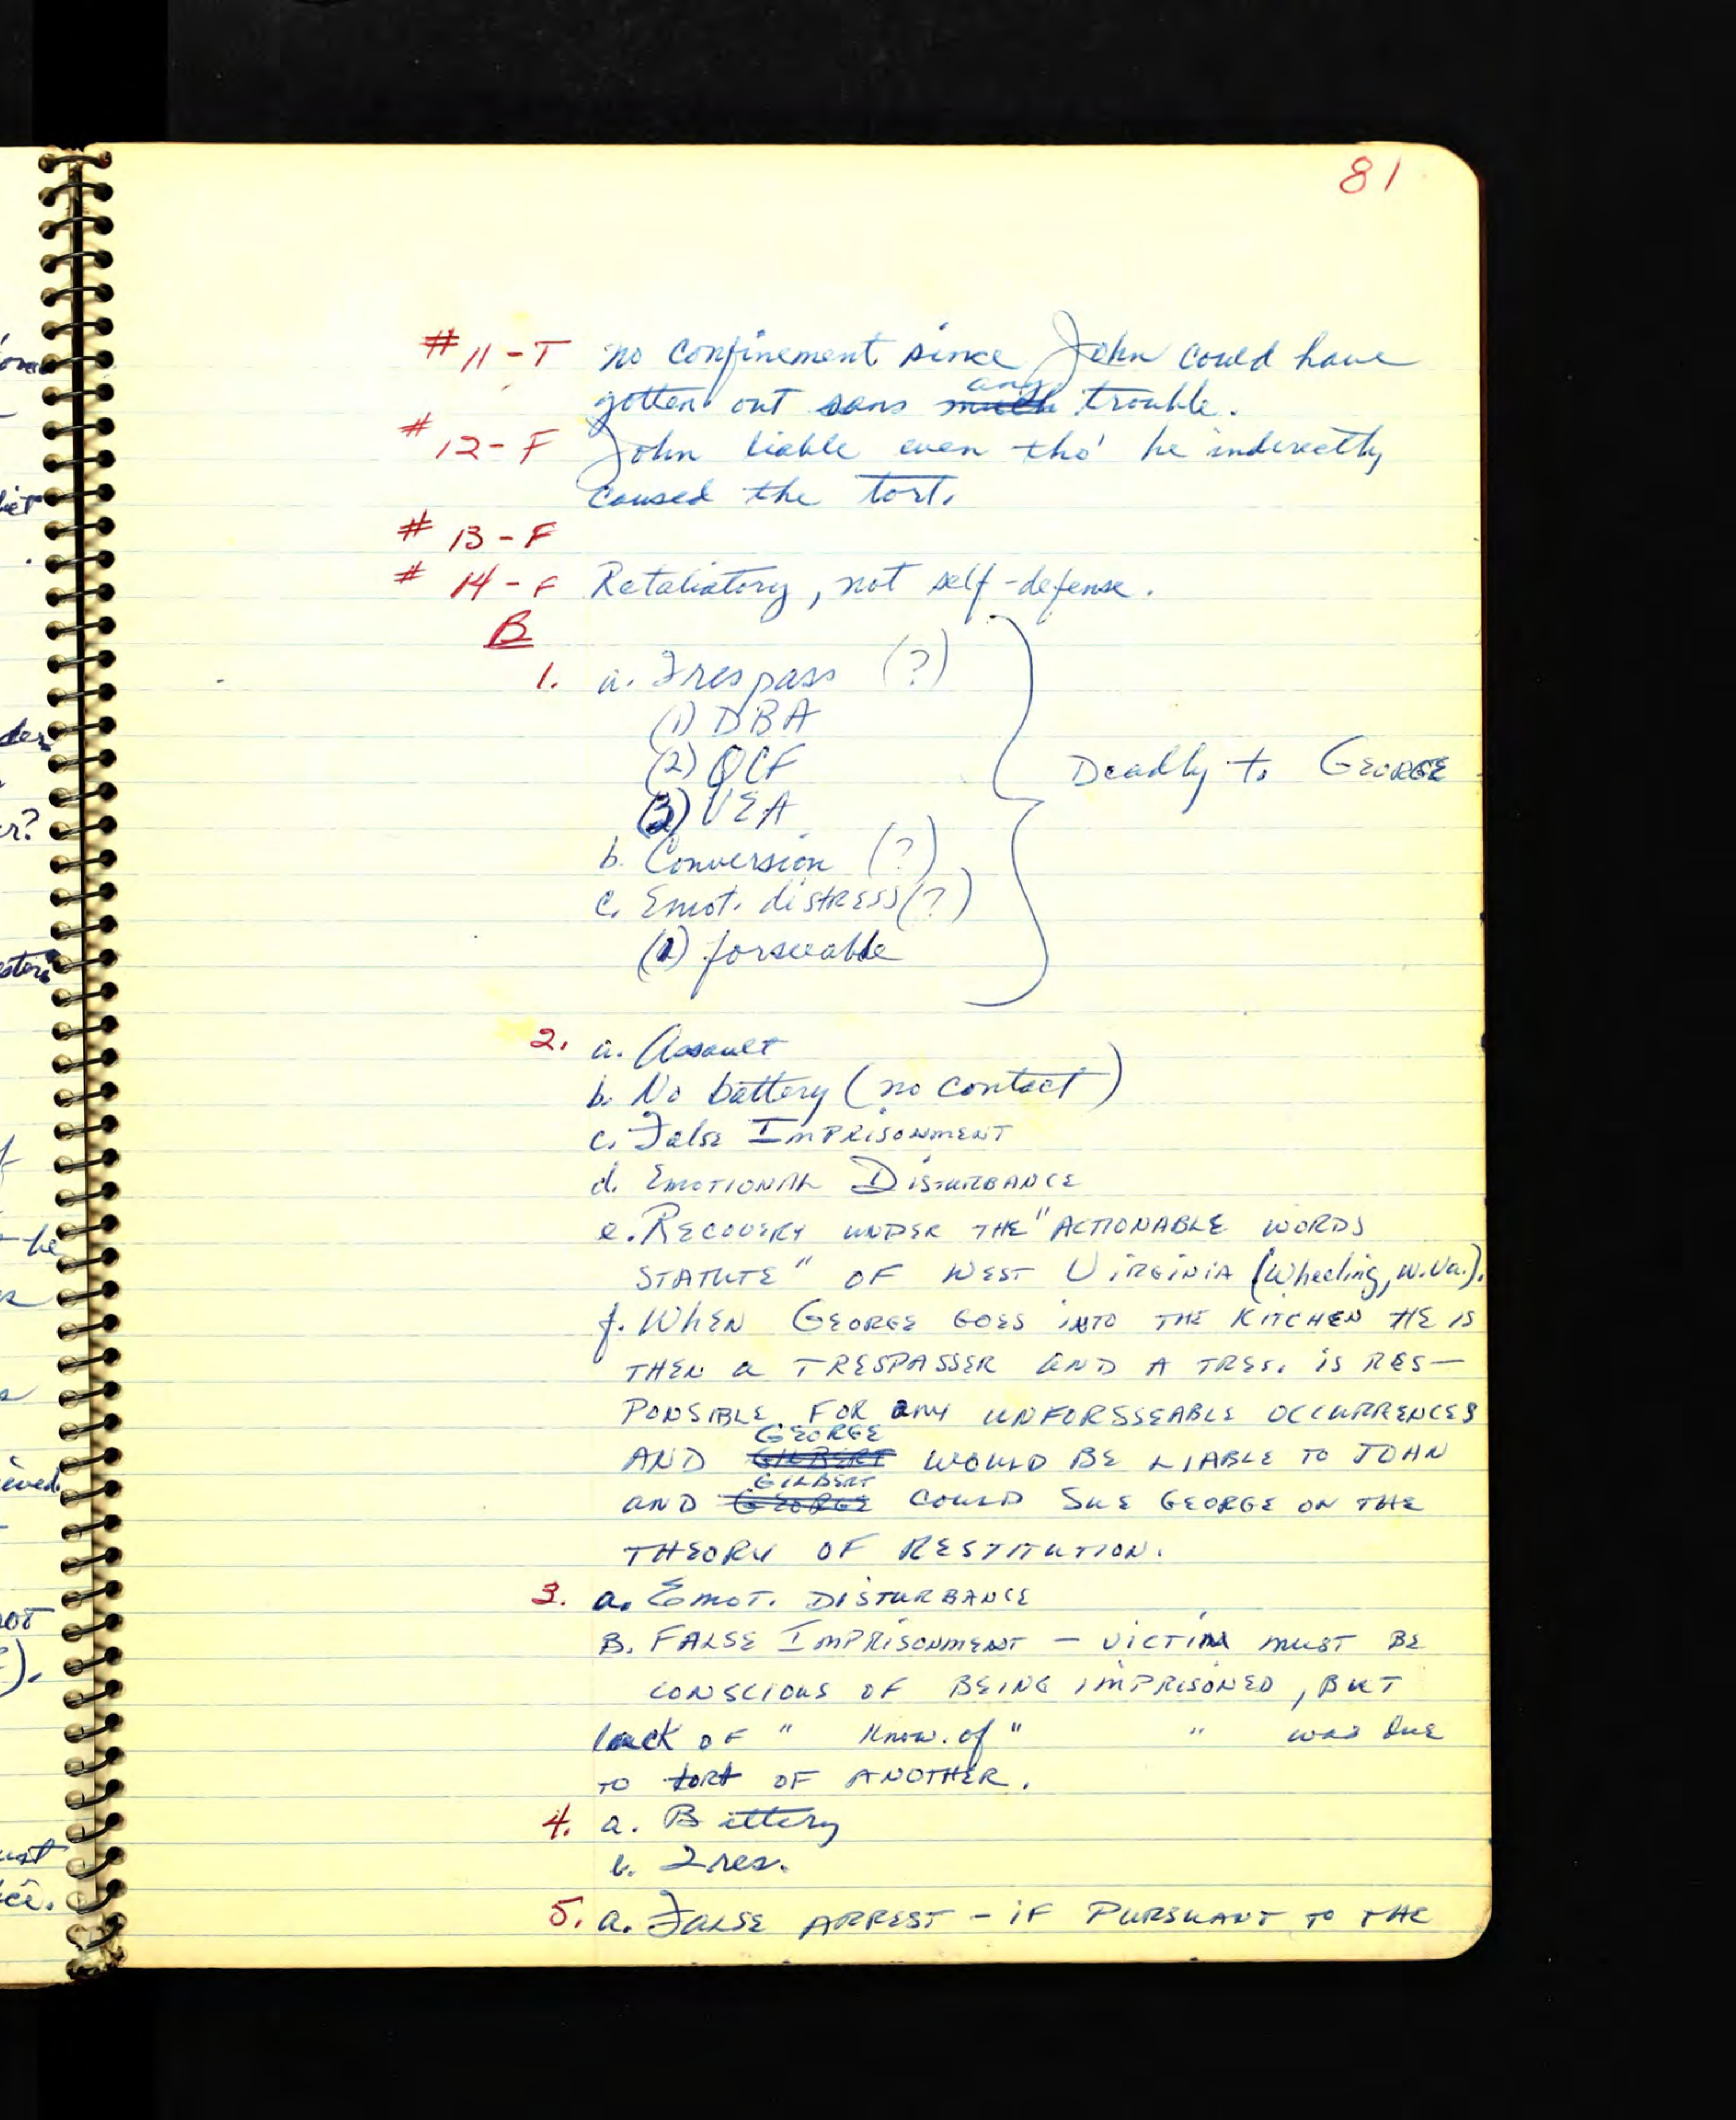 81
#11-T no confinement since John could have
gotten out sans ~~much~~ any trouble.
#12-F John liable even tho' he inderectly
caused the tort.
#13-F
#14-F Retaliatory, not self-defense.
B
1. a. Trespass (?)
(1) DBA
(2) QCF
(3) VEA
b. Conversion (?)
c. Emot. distress (?)
(1) forseeable
Deadly to George
2. a. Assault
b. No battery (no contact)
c. False Imprisonment
d. Emotional Disturbance
e. Recovery under the "actionable words
statute" of West Virginia (Wheeling, W.Va.).
f. When George goes into the kitchen he is
then a trespasser and a tres. is res-
ponsible for any unforsseable occurrences
and ~~Gilbert~~ George would be liable to John
and ~~George~~ Gilbert could sue George on the
theory of restitution.
3. a. Emot. Disturbance
B. False Imprisonment - victim must be
conscious of being imprisoned, but
lack of " know. of " " was due
to tort of another.
4. a. Battery
b. Tres.
5. a. False arrest - if pursuant to the